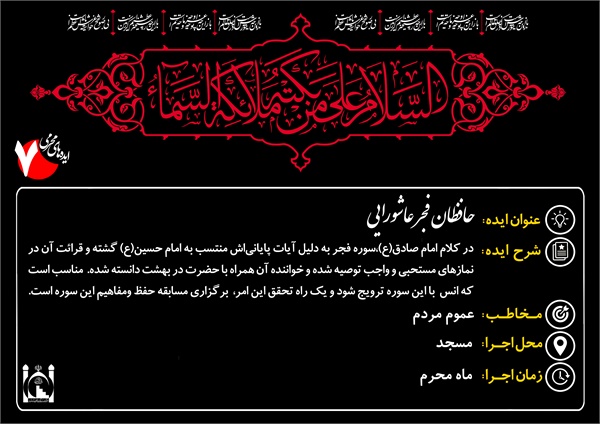 السَّلَامُ عَلَى مَنْ بَكَتْهُ مَلَائِكَةُ السَّمَاءِ
ایده‌های محرمی
۷
عنوان ایده: حافظان فجر عاشورایی
شرح ایده: در کلام امام صادق(ع)،سوره فجر به دلیل آیات پایانی‌اش منتسب به امام حسین(ع) گشته و قرائت آن در
نمازهای مستحبی و واجب توصیه شده و خواننده آن همراه با حضرت در بهشت دانسته شده. مناسب است
که انس با این سوره ترویج شود و یک راه تحقق این امر، برگزاری مسابقه حفظ ومفاهیم این سوره است.
مـخاطـب: عموم مردم
محل اجـرا: مسجد
زمان اجرا: ماه محرم